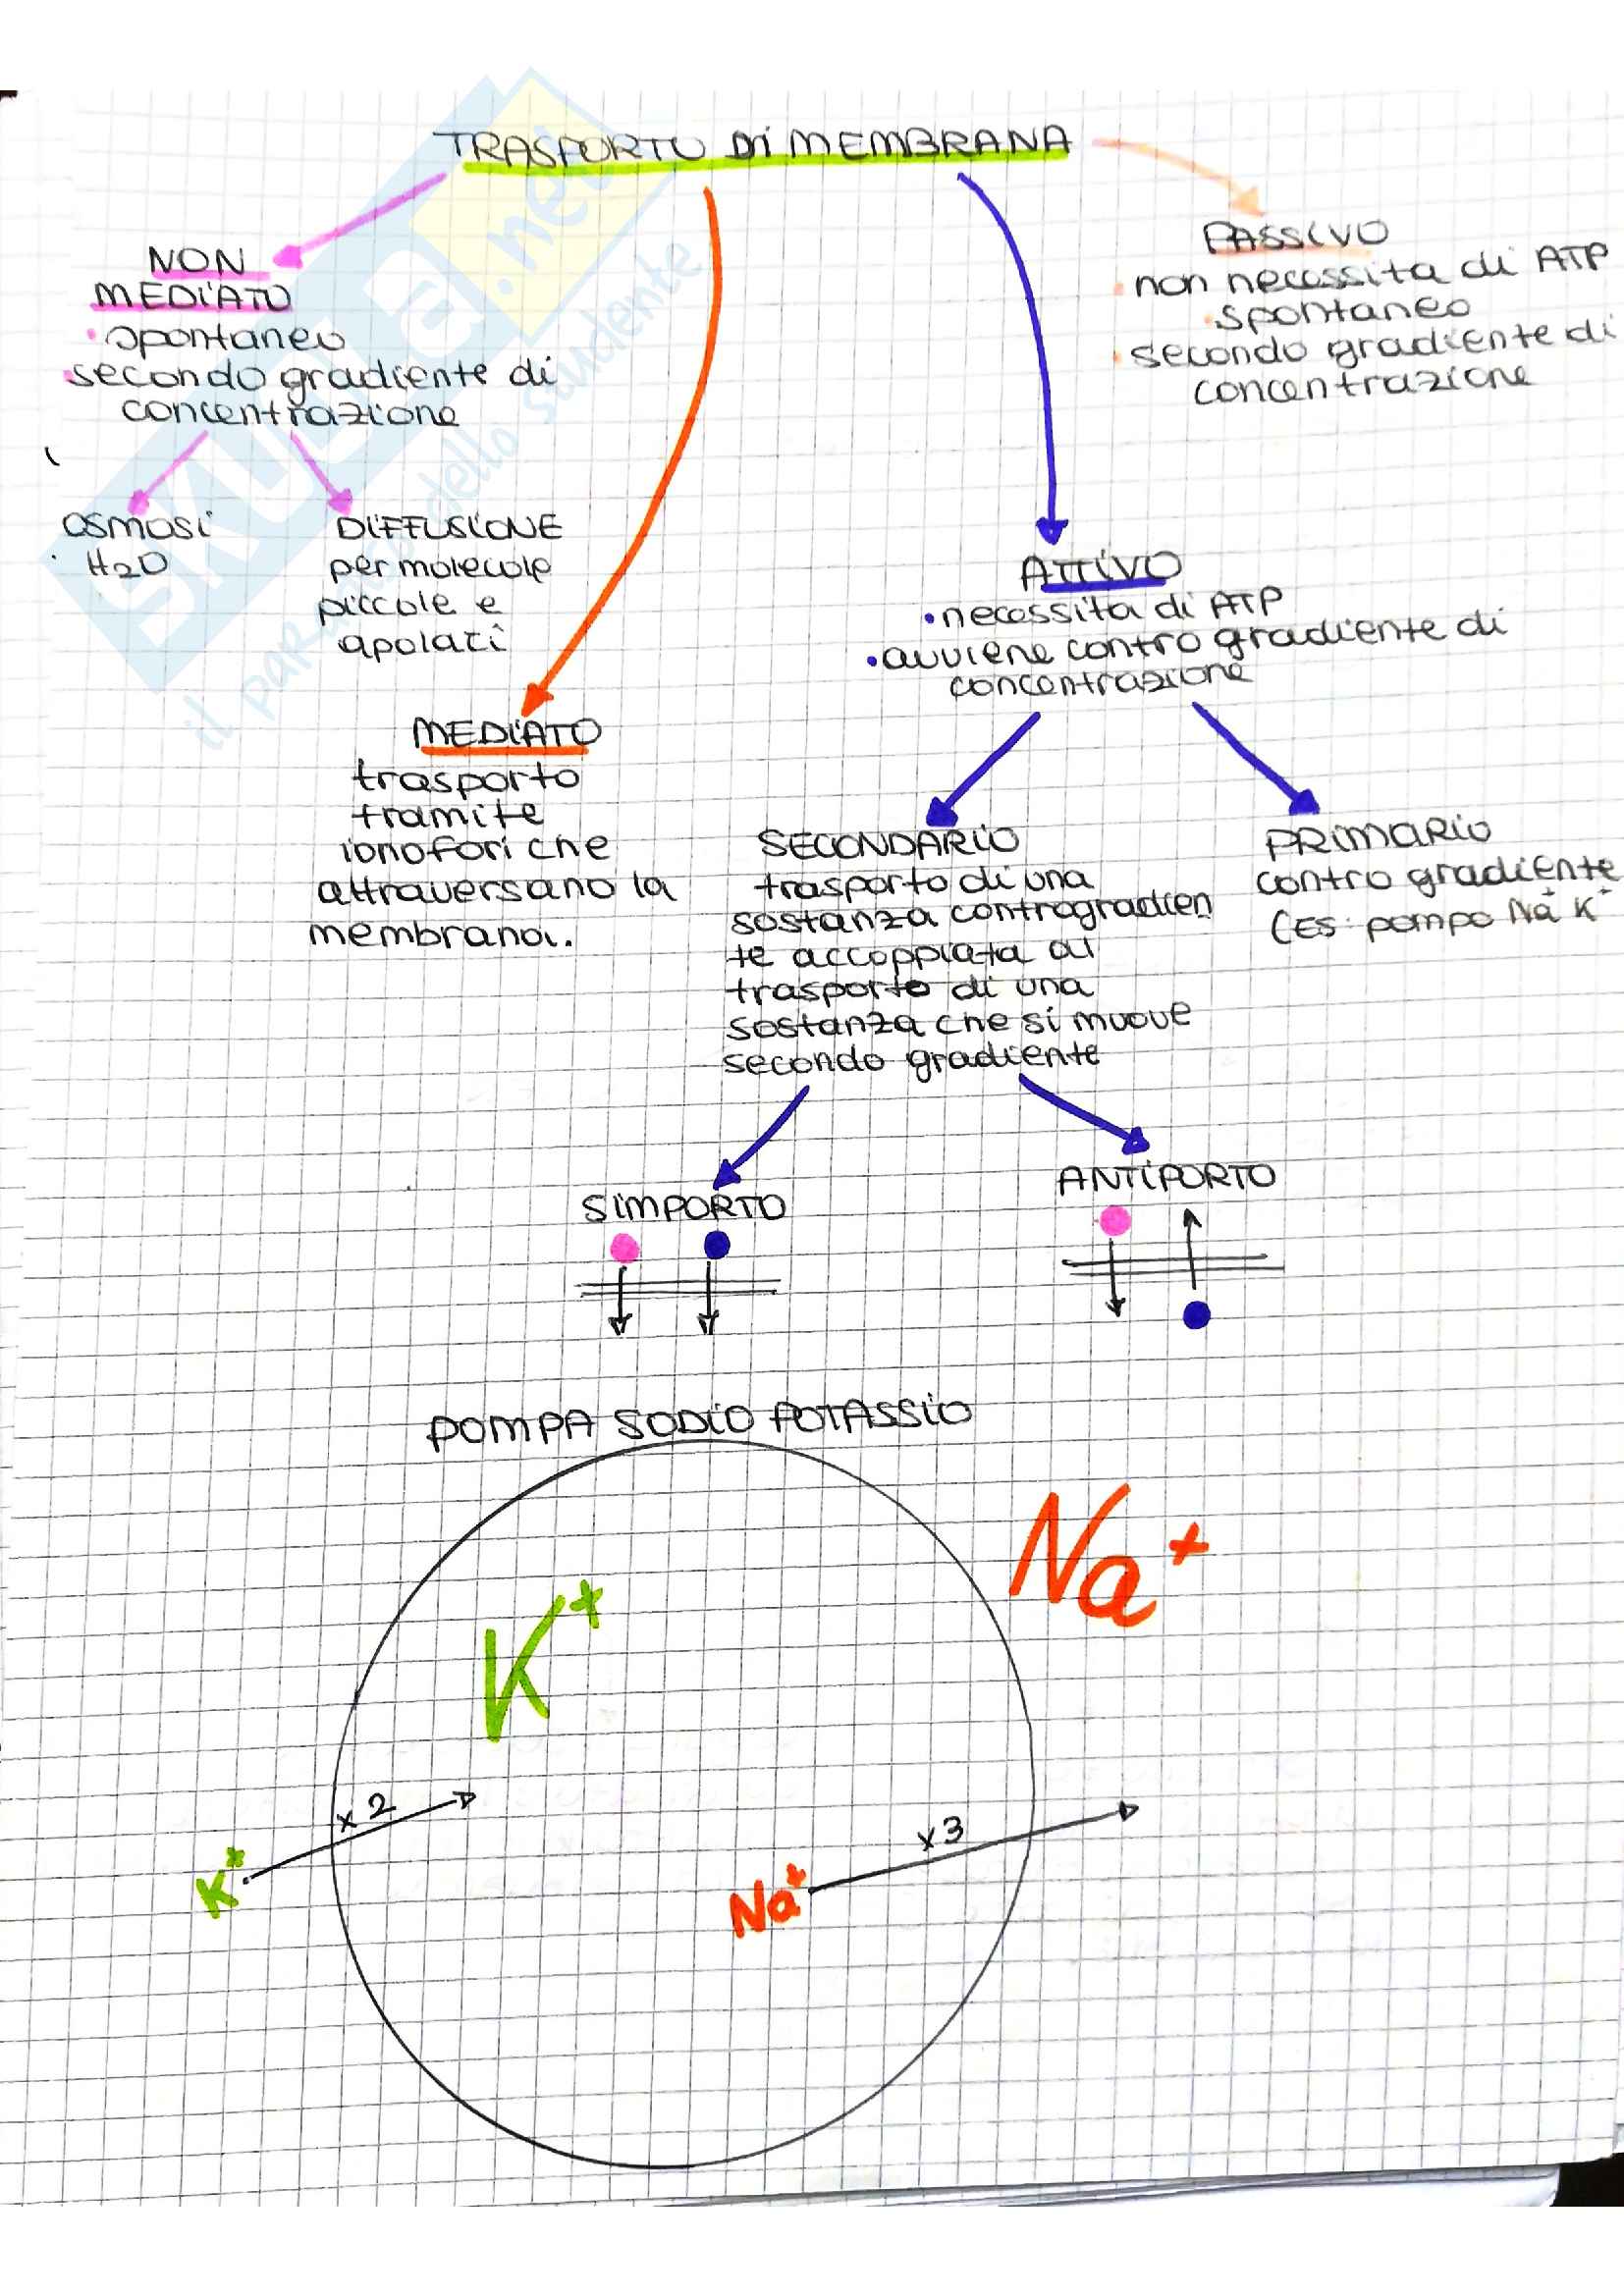 TRASPORTO Di MEMBRANA
NON
MEDIATO
• spontaneo
• secondo gradiente di
concentrazione
OSMOSi
• H2O
DIFFUSIONE
per molecole
piccole e
apolari
MEDIATO
trasporto
tramite
ionofori che
attraversano la
membrana.
PASSIVO
• non necessita di ATP
• spontaneo
• secondo gradiente di
concentrazione
ATTIVO
• necessita di ATP
• avviene contro gradiente di
concentrazione
SECONDARIO
trasporto di una
sostanza controgradien
te accoppiata al
trasporto di una
sostanza che si muove
secondo gradiente
PRIMARIO
contro gradiente
(ES: pompa Na+ K+
SIMPORTO
ANTIPORTO
POMPA SODIO POTASSIO
Na+
K+
x2
x3
K+
Na+
SKUOLa.net
il paradiso dello studente